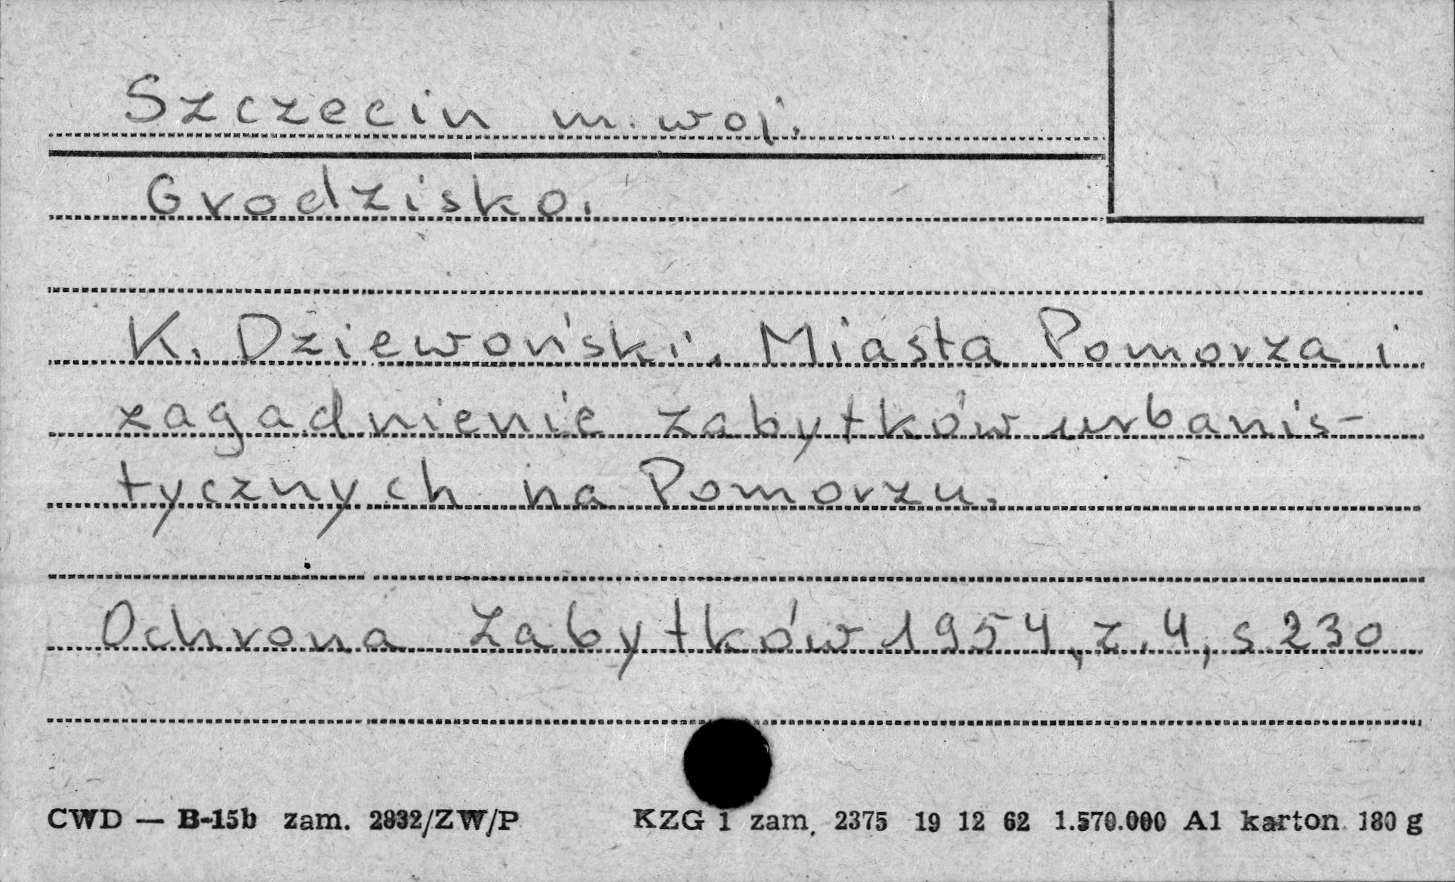 Szczecin m. woj.
Grodzisko.
K. Dziewoński. Miasta Pomorza i
zagadnienie zabytków urbanis-
tycznych na Pomorzu.
Ochrona Zabytków 1954, z. 4, s 230
CWD — B-15b zam. 2932/ZW/P KZG 1 zam. 2375 19 12 62 1.570.000 A1 karton 180 g